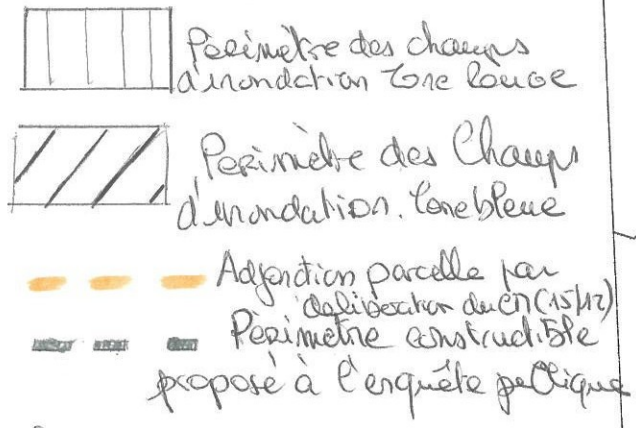 Périmètre des champs
d'inondation Zone Rouge
Perimètre des Champs
d'inondation. Zone bleue
Adjonction parcelle par
deliberation du CM (15/12)
Périmètre constructible
proposé à l'enquête publique